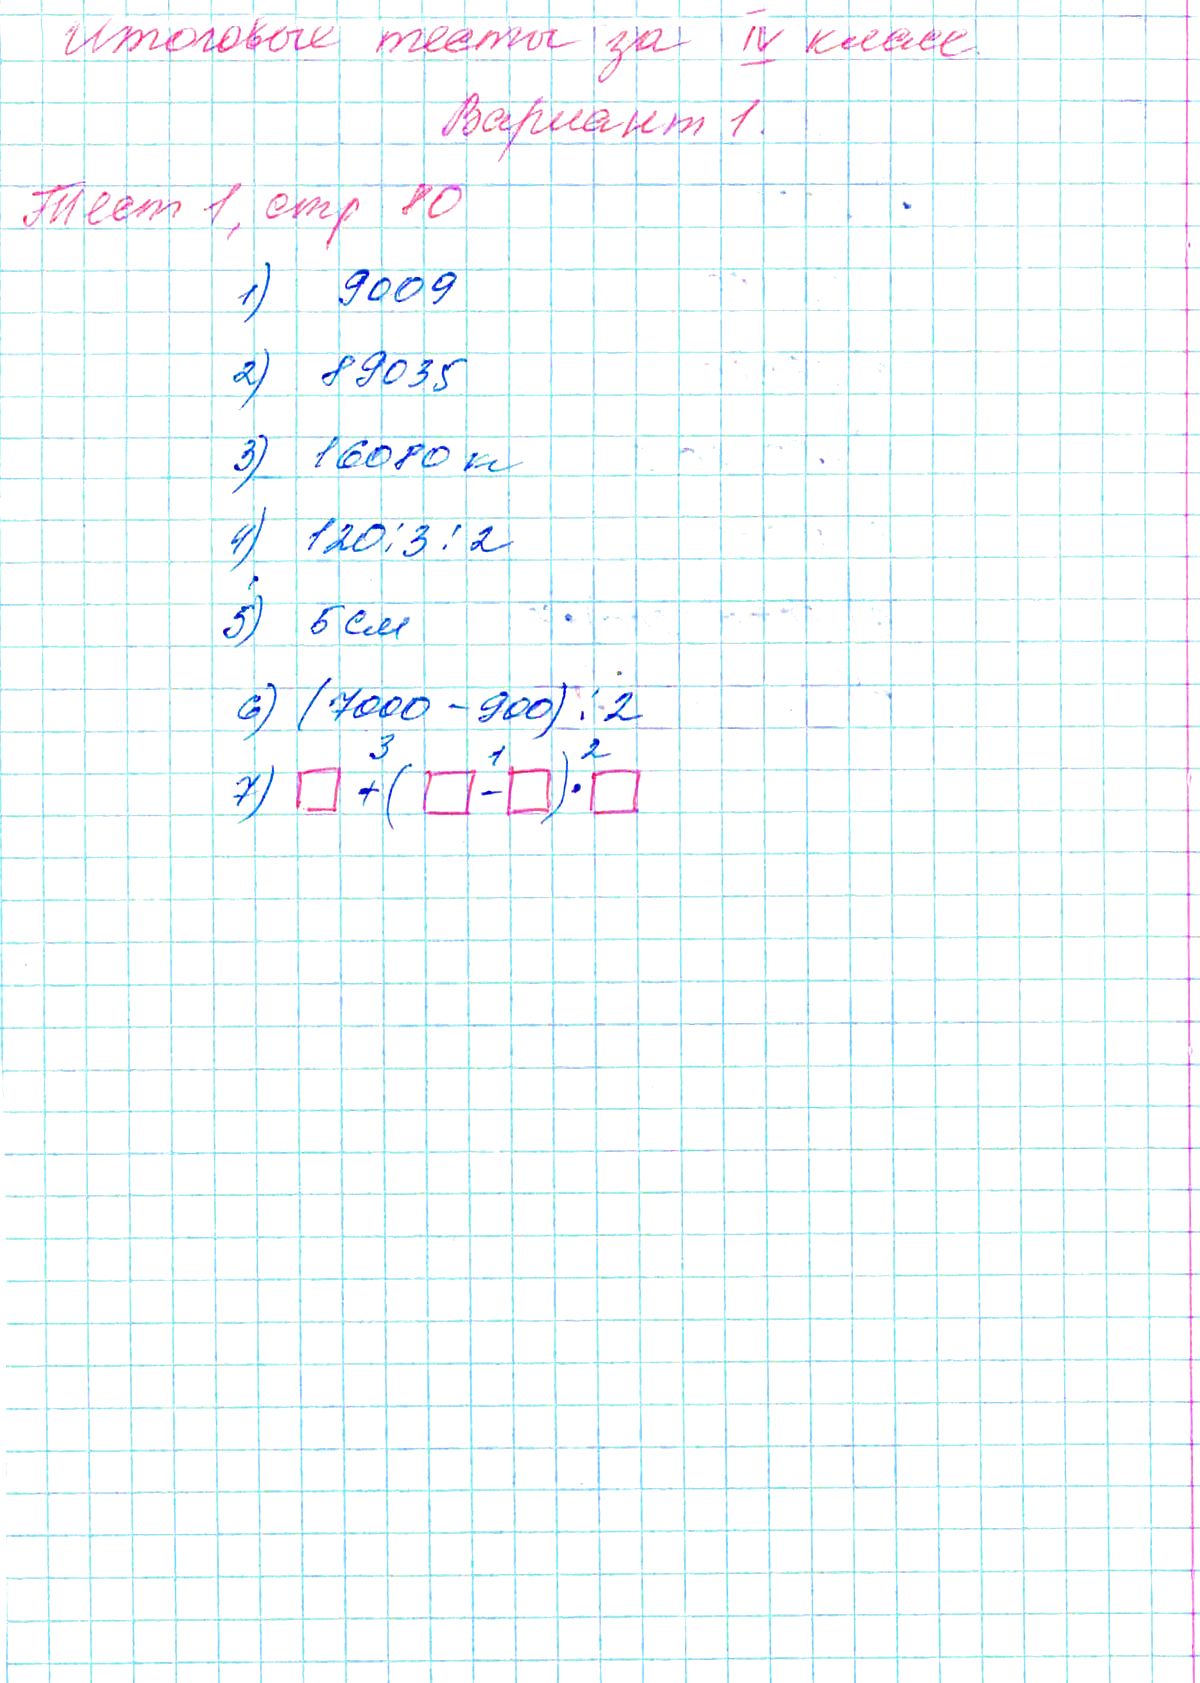 Итоговые тесты за IV класс
Вариант 1.
Тест 1, стр 80
1) 9009
2) 89035
3) 16080 к
4) 120:3:2
5) 5 см
6) (7000 - 900) : 2
3 1 2
7) □ + ( □ - □ ) · □